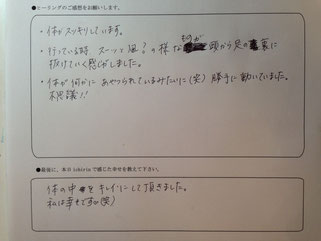 ●ヒーリングのご感想をお願いします。
・体がスッキリしています。
・行っている時 スーッと風?の様なものが 頭から足の裏に
抜けていく感じがしました。
・体が何かに あやつられているみたいに(笑) 勝手に動いていました。
不思議!!
●最後に、本日ichirinで感じた幸せを教えて下さい。
体の中をキレイにして頂きました。
私は幸せです(笑)